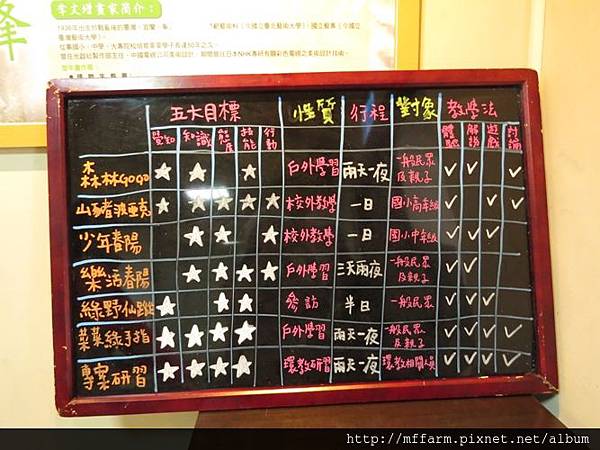 李文煌畫家簡介:
五大目標 性質 行程 對象 教學法
覺知 知識 態度 技能 行動 體驗 解說 遊戲 討論
森林GOGO ★ ★ ★ 戶外學習 兩天一夜 一般民眾及親子 ✓ ✓ ✓
山豬波亞克 ★ ★ ★ ★ ★ 校外教學 一日 國小高年級 ✓ ✓ ✓
少年春陽 ★ ★ ★ 校外教學 一日 國小中年級 ✓ ✓ ✓
樂活春陽 ★ ★ ★ ★ 戶外學習 三天兩夜 一般民眾及親子 ✓ ✓
綠野仙蹤 ★ ★ ★ 參訪 半日 一般民眾 ✓ ✓ ✓
菜菜綠手指 ★ ★ ★ ★ 戶外學習 兩天一夜 一般民眾及親子 ✓ ✓ ✓ ✓
專案研習 ★ ★ ★ ★ 環教研習 兩天一夜 環教相關人員 ✓ ✓ ✓ ✓
http://mffarm.pixnet.net/album